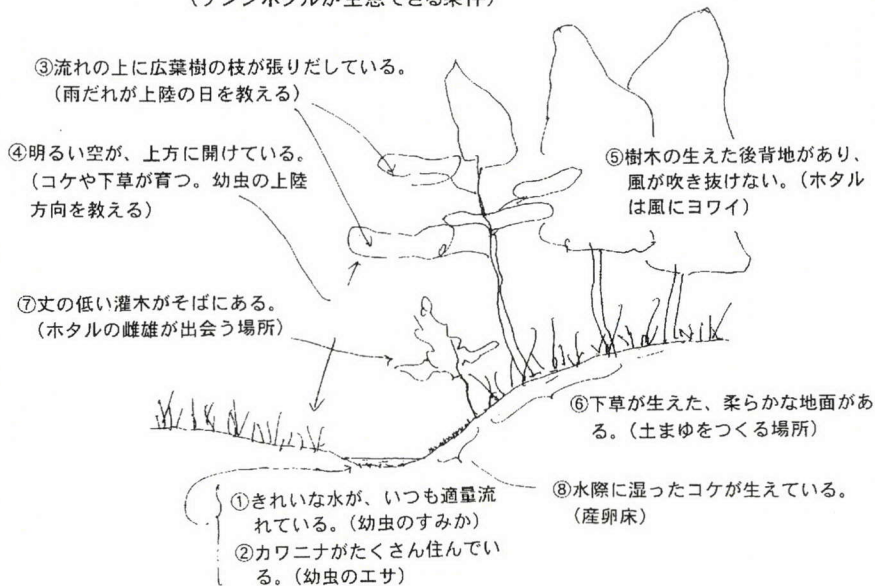 ③流れの上に広葉樹の枝が張りだしている。
(雨だれが上陸の日を教える)
④明るい空が、上方に開けている。
(コケや下草が育つ。幼虫の上陸
方向を教える)
⑤樹木の生えた後背地があり、
風が吹き抜けない。(ホタル
は風にヨワイ)
⑦丈の低い灌木がそばにある。
(ホタルの雌雄が出会う場所)
⑥下草が生えた、柔らかな地面があ
る。(土まゆをつくる場所)
①きれいな水が、いつも適量流
れている。(幼虫のすみか)
②カワニナがたくさん住んでい
る。(幼虫のエサ)
⑧水際に湿ったコケが生えている。
(産卵床)